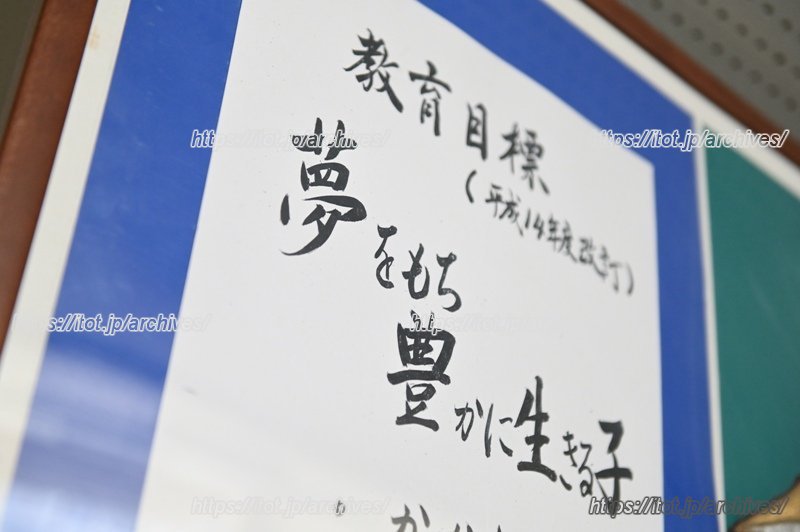 教育目標
(平成14年度改訂)
夢をもち
豊かに生きる子
https://itot.jp/archives/
https://itot.jp/archives/
https://itot.jp/archives/
https://itot.jp/archives/
https://itot.jp/archives/
https://itot.jp/archives/
https://itot.jp/archives/